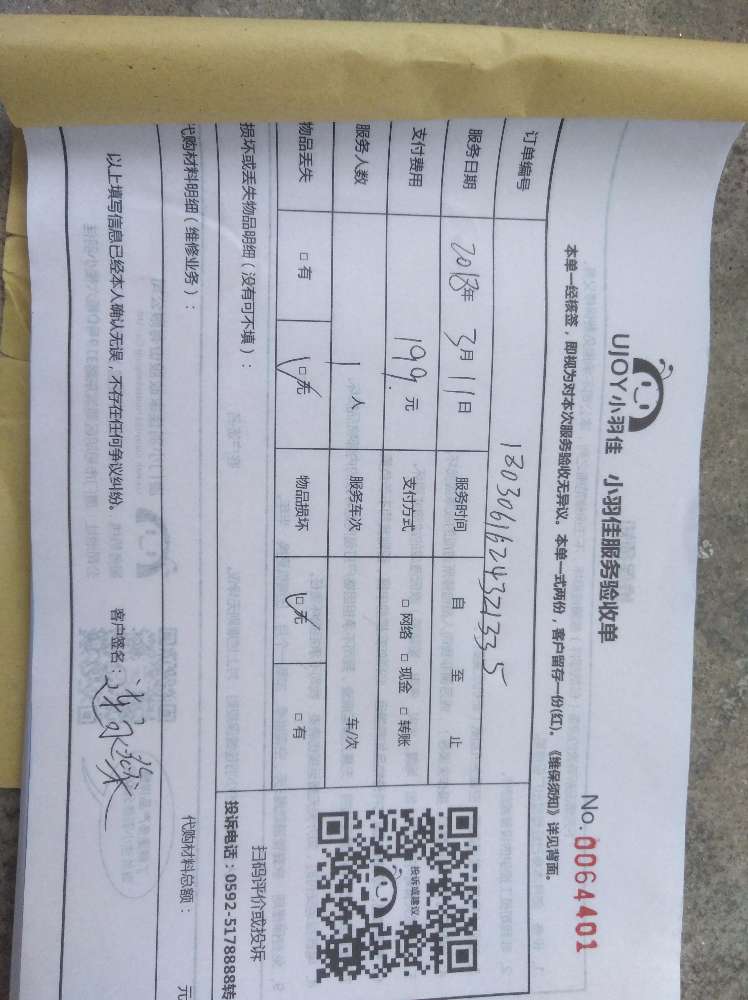 UJOY小羽佳 小羽佳服务验收单
No.0064401
本单一经核签，即视为对本次服务验收无异议。本单一式两份，客户留存一份(红)。《维保须知》详见背面。
订单编号 1803061624321335
服务日期 2018年 3月 11日 服务时间 自 至 止
支付费用 199 元 支付方式 □ 网络 □ 现金 □ 转账
服务人数 1 人 服务车次 车/次
物品丢失 □ 有 □ 无 物品损坏 □ 无 □ 有
损坏或丢失物品明细（没有可不填）：
投诉或建议
扫码评价或投诉
投诉电话：0592-5178888转
代购材料明细（维修业务）： 代购材料总额： 元
以上填写信息已经本人确认无误，不存在任何争议纠纷。 客户签名：